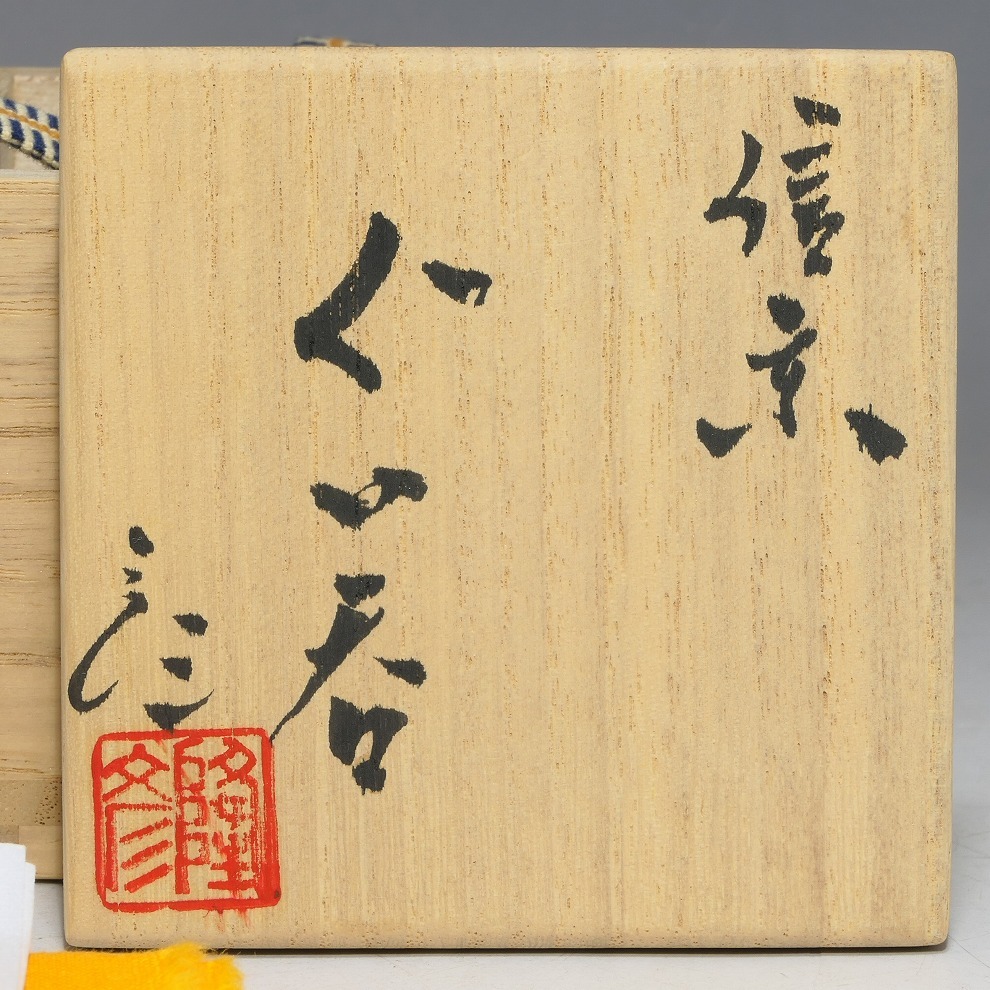 信楽
ぐい呑
隆彦